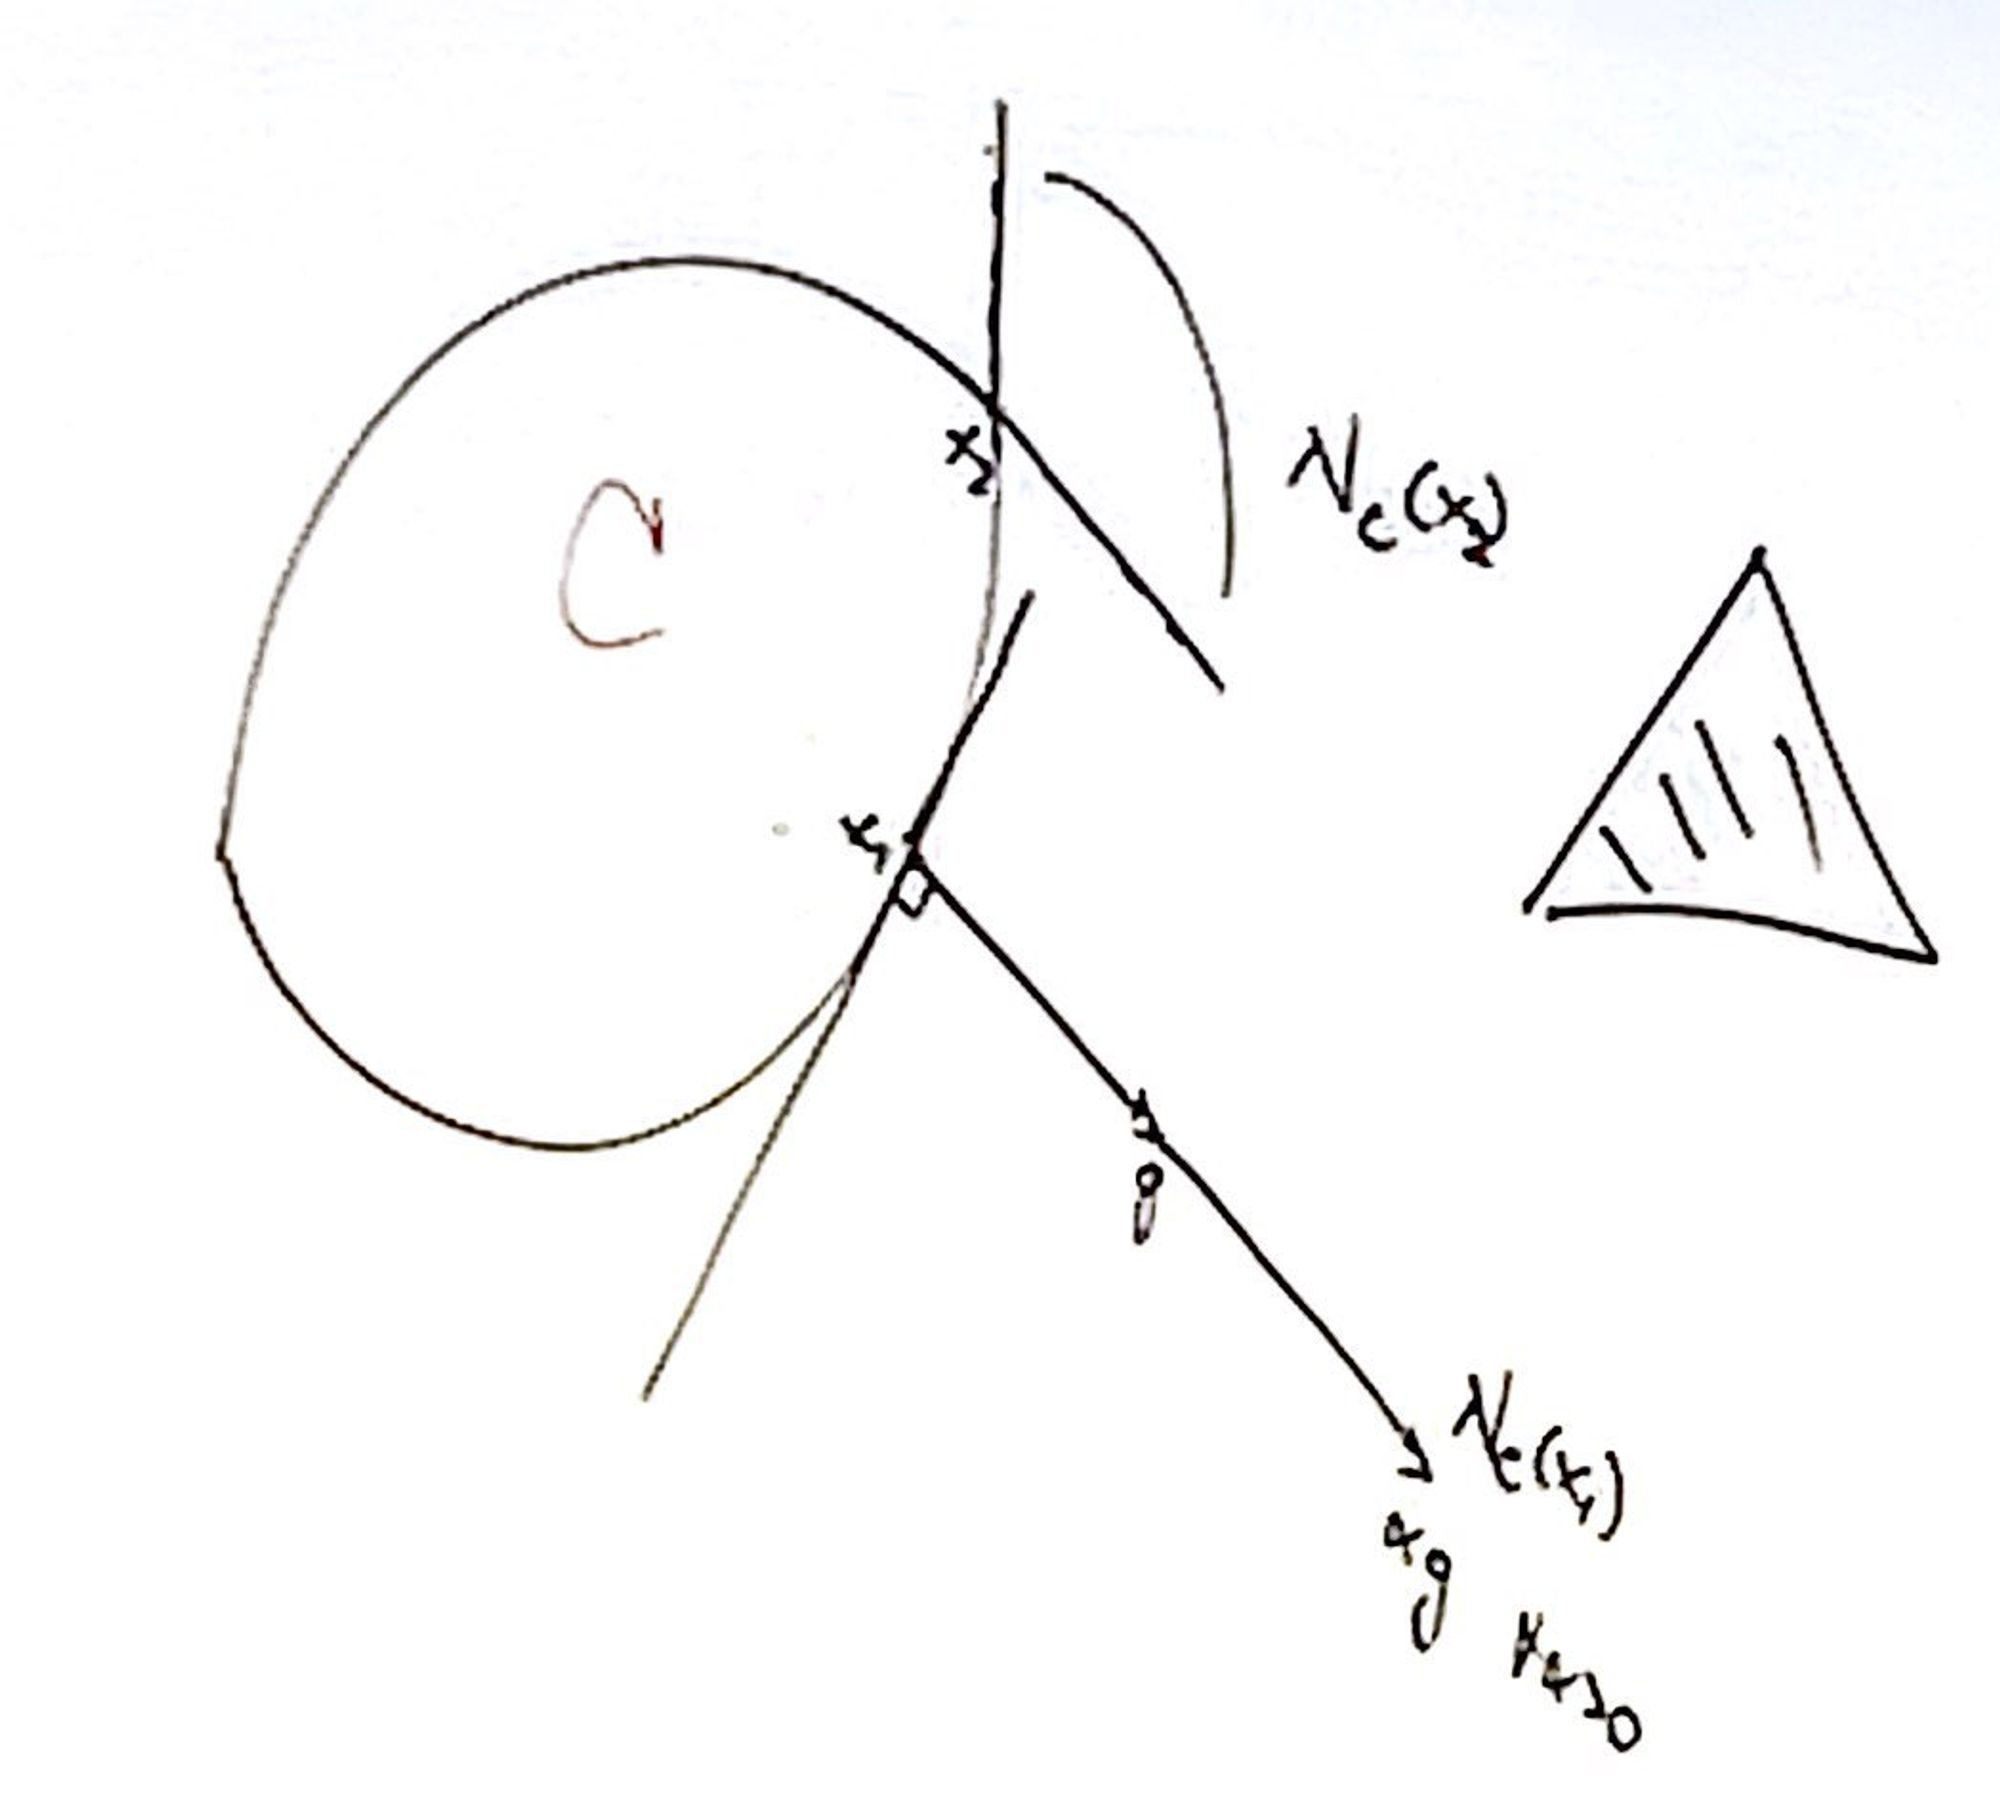 x₂
N_C(x₂)
C
x₁
g
N_C(x₁)
αg
∀α≥0